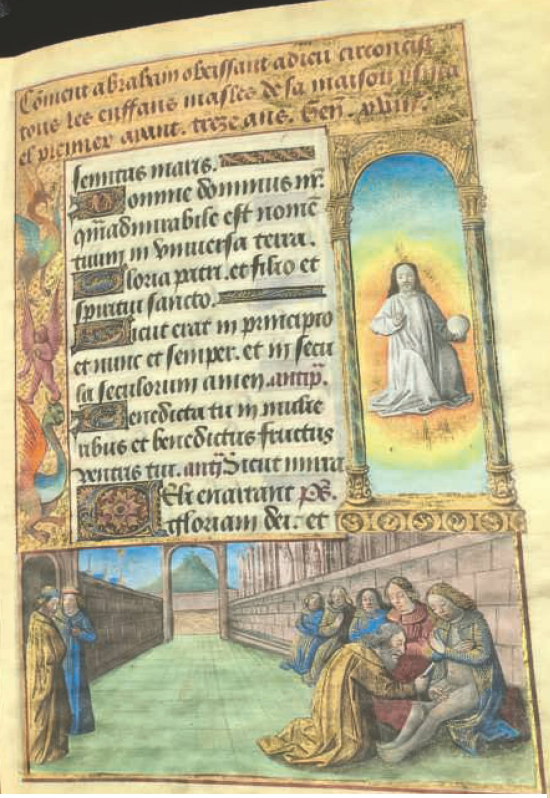 Coment abraham obeissant a dieu circoncist
tous les enffans masles de sa maison
et premier avant. treze ans. Gen. xvii.
semitas maris.
Domine dominus nr.
qmadmirabile est nomē
tuum in vniuersa terra.
Gloria patri. et filio et
spiritui sancto.
Sicut erat in principio
et nunc et semper. et in secu
la seculorum amen. antip.
Benedicta tu in mulie
ribus et benedictus fructus
ventris tui. antip. Sicut mirra
Celi enarrant ps.
gloriam dei. et